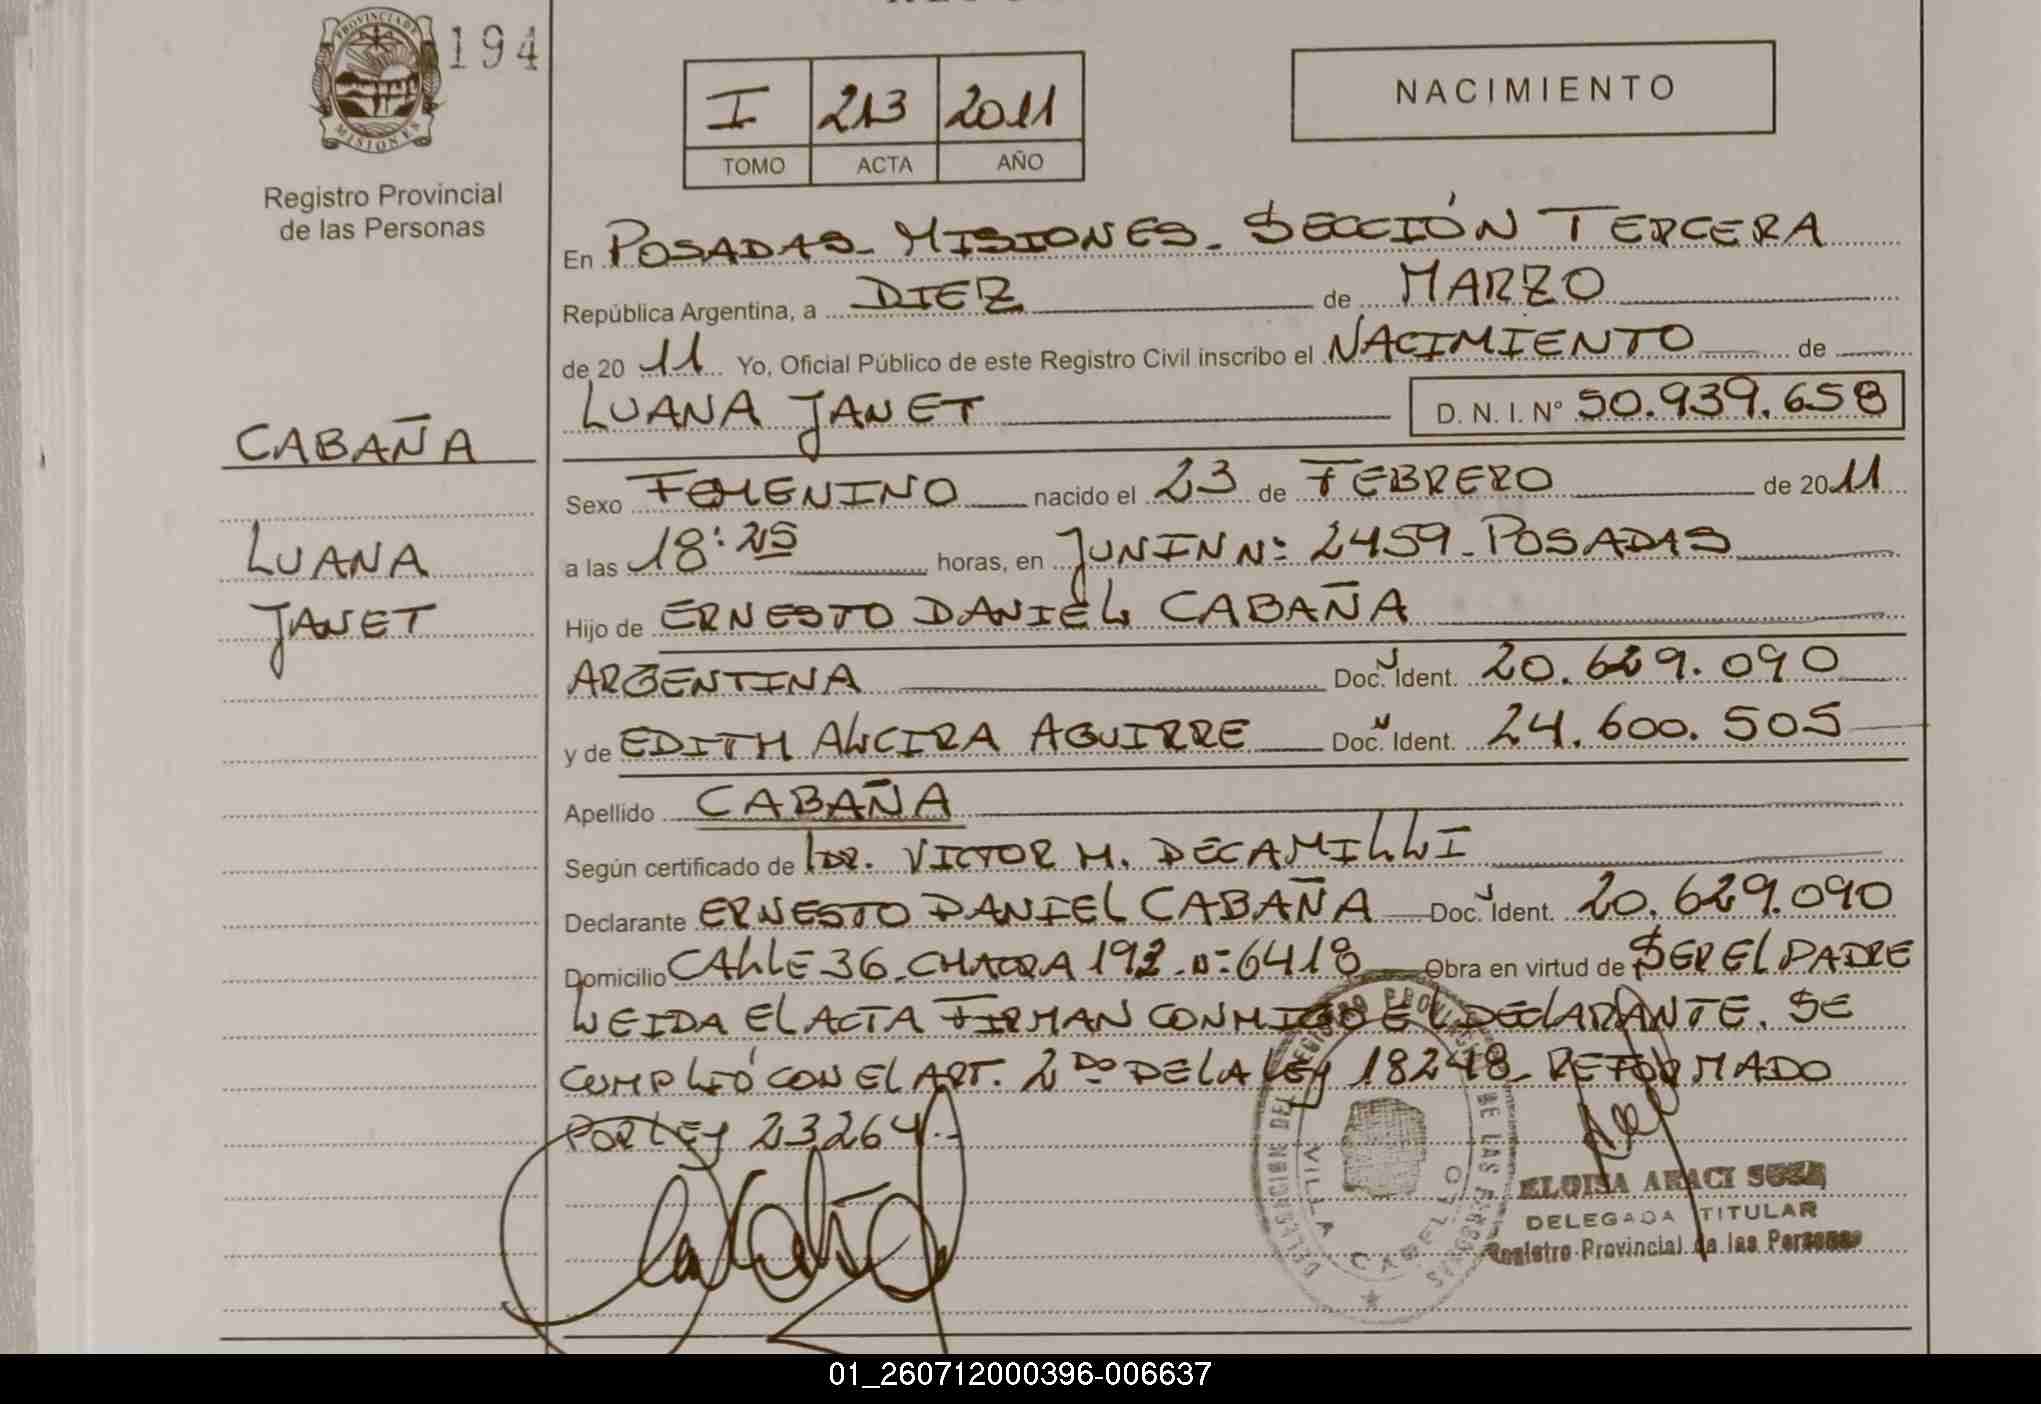 PROVINCIA DE
MISIONES
194
Registro Provincial
de las Personas
I 213 2011
TOMO ACTA AÑO
NACIMIENTO
En POSADAS - MISIONES - SECCIÓN TERCERA
República Argentina, a DIEZ de MARZO
de 20 11 Yo, Oficial Público de este Registro Civil inscribo el NACIMIENTO de
LUANA JANET D. N. I. N° 50.939.658
CABAÑA
LUANA
JANET
Sexo FEMENINO nacido el 23 de FEBRERO de 2011
a las 18:25 horas, en JUNIN Nº 2459 - POSADAS
Hijo de ERNESTO DANIEL CABAÑA
ARGENTINA Doc. Ident. 20.629.090
y de EDITH ALCIRA AGUIRRE Doc. Ident. 24.600.505
Apellido CABAÑA
Según certificado de DR. VICTOR M. DECAMILLI
Declarante ERNESTO DANIEL CABAÑA Doc. Ident. 20.629.090
Domicilio CALLE 36 - CHACRA 192 - Nº 6418 Obra en virtud de SER EL PADRE
LEIDA EL ACTA FIRMAN CONMIGO EL DECLARANTE. SE
CUMPLIÓ CON EL ART. 2DO DE LA LEY 18248 - REFORMADO
POR LEY 23264.-
DELEGACION DEL REGISTRO PROVINCIAL DE LAS PERSONAS
VILLA CABELLO
ELOISA ARACI SOSA
DELEGADA TITULAR
Registro Provincial de las Personas
01_260712000396-006637